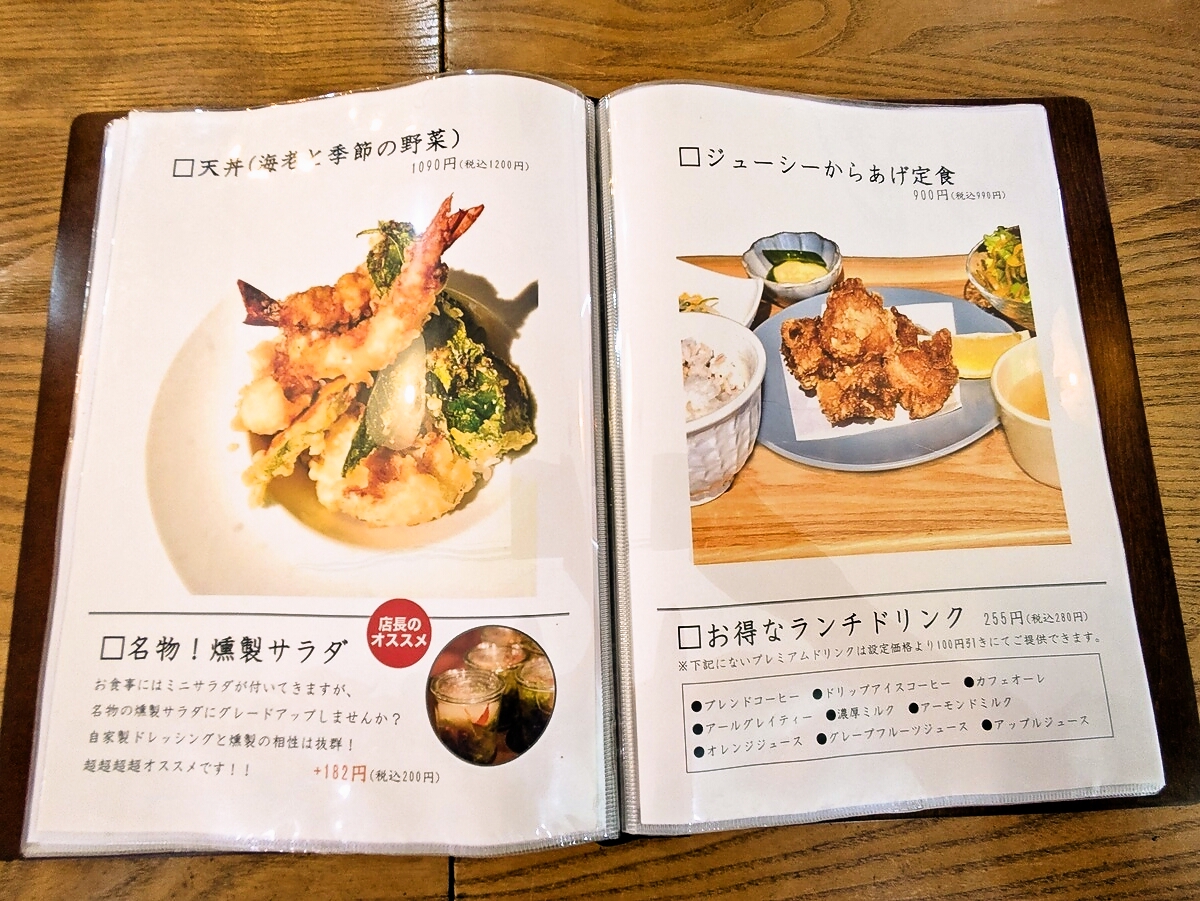 □天丼(海老と季節の野菜)
1090円(税込1200円)
店長の
オススメ
□名物！燻製サラダ
お食事にはミニサラダが付いてきますが、
名物の燻製サラダにグレードアップしませんか？
自家製ドレッシングと燻製の相性は抜群！
超超超超オススメです！！
+182円(税込200円)
□ジューシーからあげ定食
900円(税込990円)
□お得なランチドリンク 255円(税込280円)
※下記にないプレミアムドリンクは設定価格より100円引きにてご提供できます。
●ブレンドコーヒー ●ドリップアイスコーヒー ●カフェオーレ
●アールグレイティー ●濃厚ミルク ●アーモンドミルク
●オレンジジュース ●グレープフルーツジュース ●アップルジュース